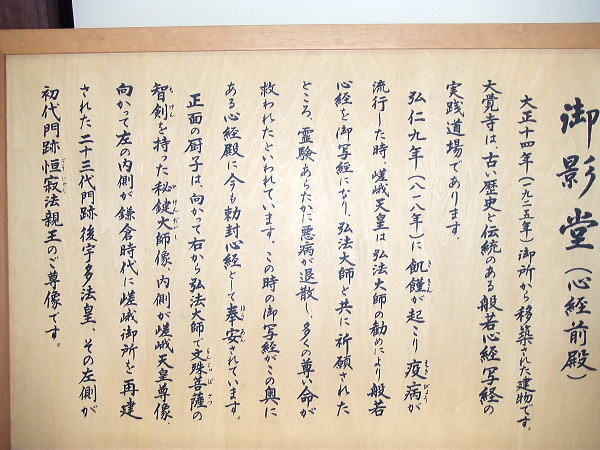 御影堂（心経前殿）
大正十四年（一九二五年）御所から移築された建物です。
大覚寺は、古い歴史と伝統のある般若心経写経の
実践道場であります。
弘仁九年（八一八年）に飢饉が起こり疫病が
流行した時、嵯峨天皇は弘法大師の勧めにより般若
心経を御写経になり、弘法大師と共に祈願された
ところ、霊験あらたかに悪病が退散し、多くの尊い命が
救われたといわれています。この時の御写経がこの奥に
ある心経殿に今も勅封心経として奉安されています。
正面の厨子は、向かって右から弘法大師で文殊菩薩の
智剣を持った秘鍵大師像、内側が嵯峨天皇尊像、
向かて左の内側が鎌倉時代に嵯峨御所を再建
された二十三代門跡後宇多法皇、その左側が
初代門跡恒寂法親王のご尊像です。